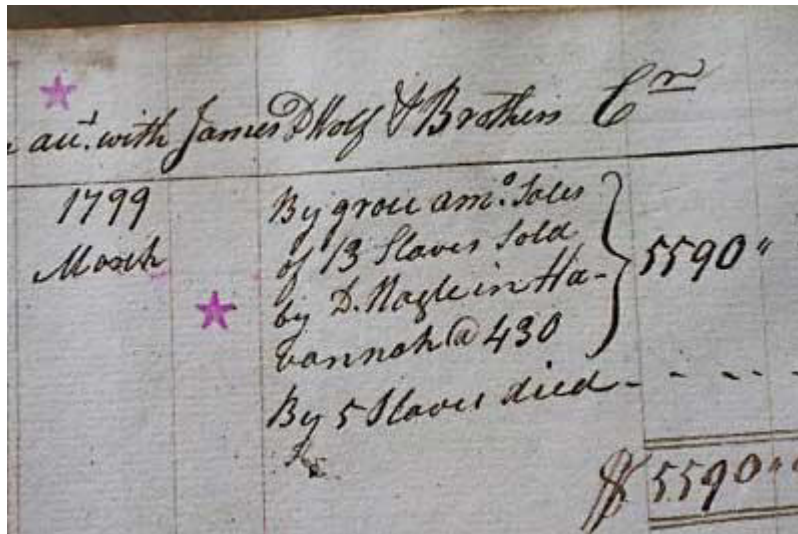 acct. with James D'Wolf & Brothers Cr
1799
March
By gross amo. Sales
of 13 Slaves Sold
by D. Nagle in Ha-
vannah @ 430
5590"
By 5 Slaves died - - - - -
$ 5590""